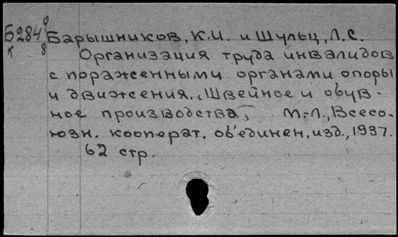 Б284 Барышников, К.И. и Шульц, Л.С.
Организация труда инвалидов
с пораженными органами опоры
и движения. Швейное и обув-
ное производства, М.-Л., Всесо-
юзн. кооперат. об'единен. изд., 1937.
62 стр.